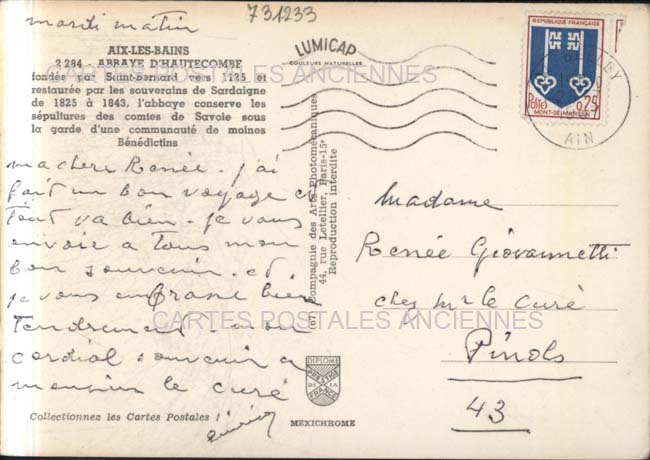 mardi matin
731233
AIX-LES-BAINS
2 284 - ABBAYE D'HAUTECOMBE
fondée par Saint-Bernard vers 1125 et
restaurée par les souverains de Sardaigne
de 1825 à 1843, l'abbaye conserve les
sépultures des comtes de Savoie sous
la garde d'une communauté de moines
Bénédictins
ma chere Renée - j'ai
fait un bon voyage et
tout va bien - je vous
envoie a tous mon
bon souvenir - et
je vous embrasse bien
tendrement - mon
cordial souvenir a
monsieur le curé
Collectionnez les Cartes Postales !
LUMICAP
COULEURS NATURELLES
(67) Compagnie des Arts Photomécaniques
44, rue Letellier, Paris-15e
Reproduction interdite
DIPLOME
PRESTIGE
DE LA
FRANCE
MEXICHROME
REPUBLIQUE FRANÇAISE
Postes
0,25
MONT-DE-MARSAN
AIN
Madame
Renée Giovannetti
chez Mr le Curé
Pinols
43
CARTES POSTALES ANCIENNES
CARTES POSTALES ANCIENNES